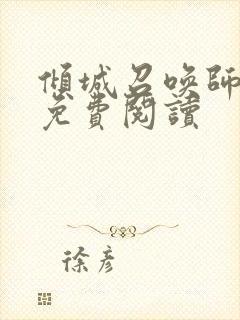 傾城召喚師
免費閱讀
徐彥